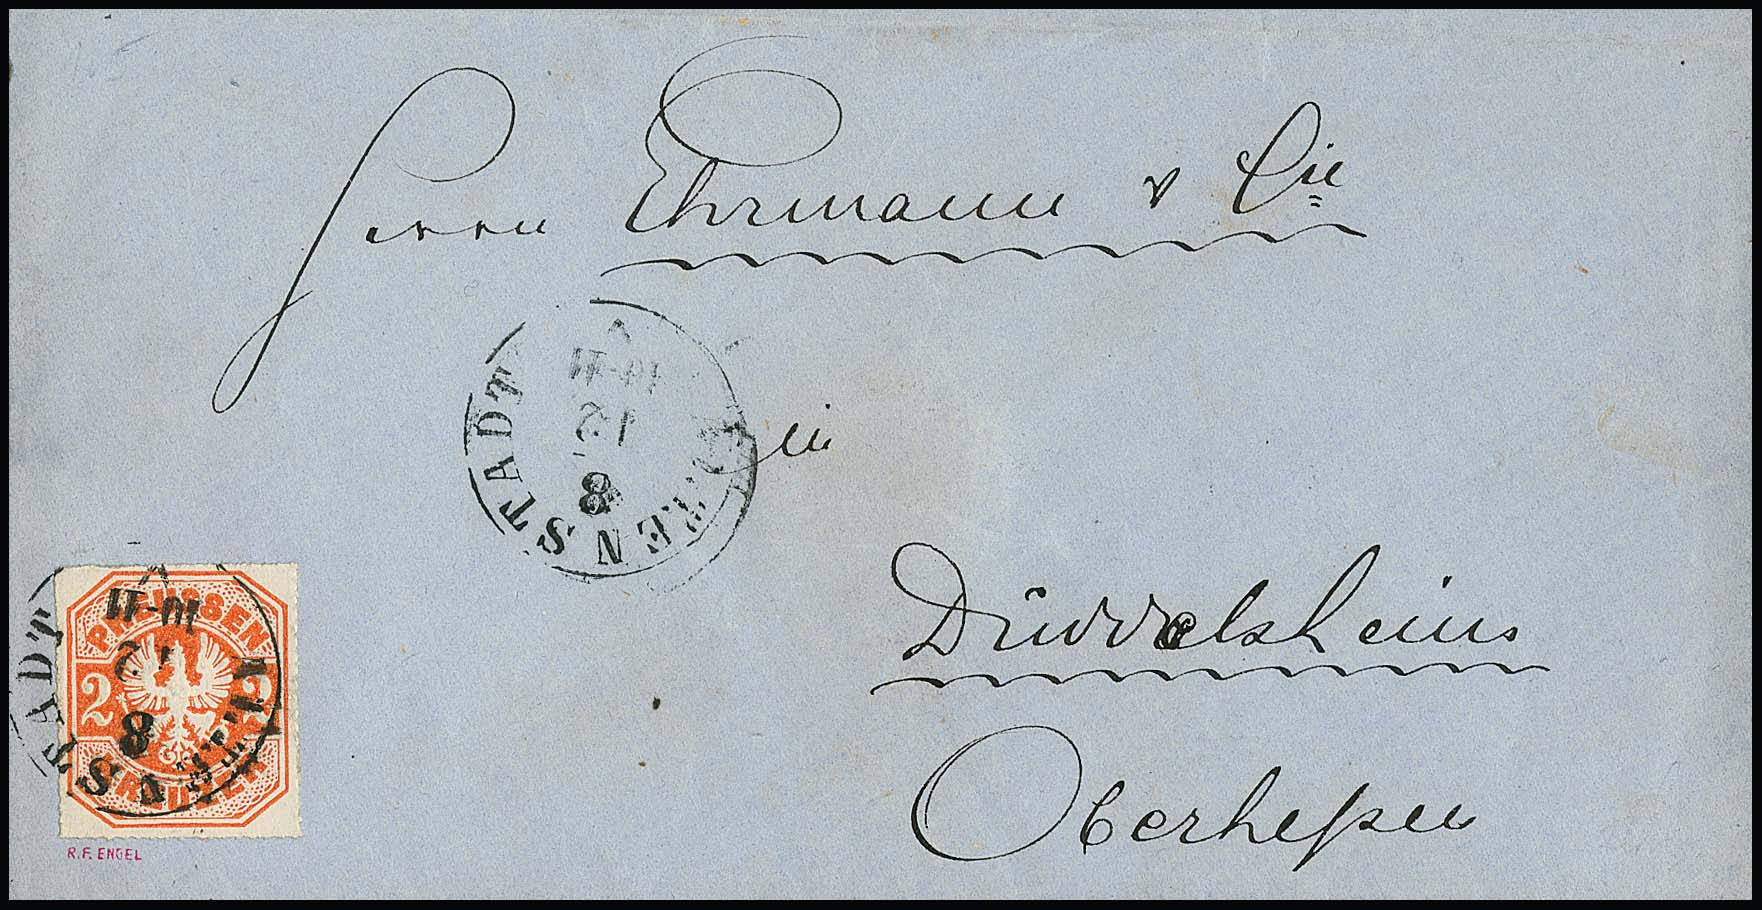 Herrn Ehrmann & Cie
in
Düdelsheim
Oberhessen
STADT
10-11
12
8
PREUSSEN
2 2
KREUZER
STADT
10-11
12
8
R.F. ENGEL